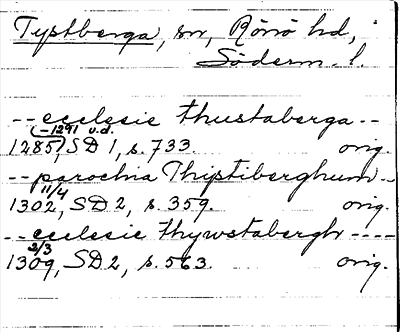 Tystberga, sn, Rönö hd,
Söderm. l.
-- ecclesie thustaberga --
(-1291 u.d.
1285), SD 1, s. 733. orig.
-- parochia Thistiberghum --
11/4
1302, SD 2, s. 359. orig.
-- ecclesie thywstabergh ----
2/3
1309, SD 2, s. 563. orig.